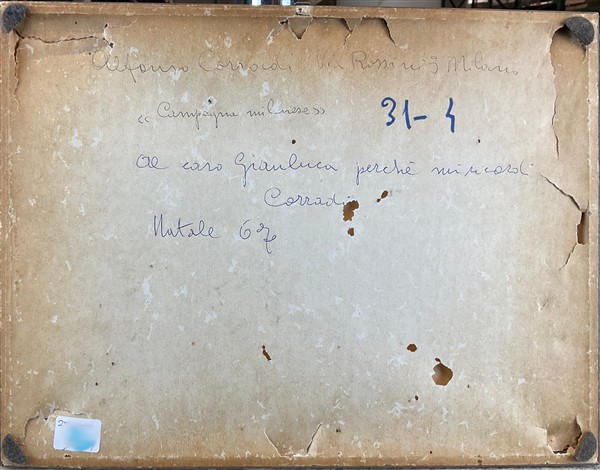 Alfonso Corradi Via Rossini 3 Milano
« Campagna milanese »
31-4
Al caro Gianluca perchè mi ricordi
Corradi
Natale 67
2-